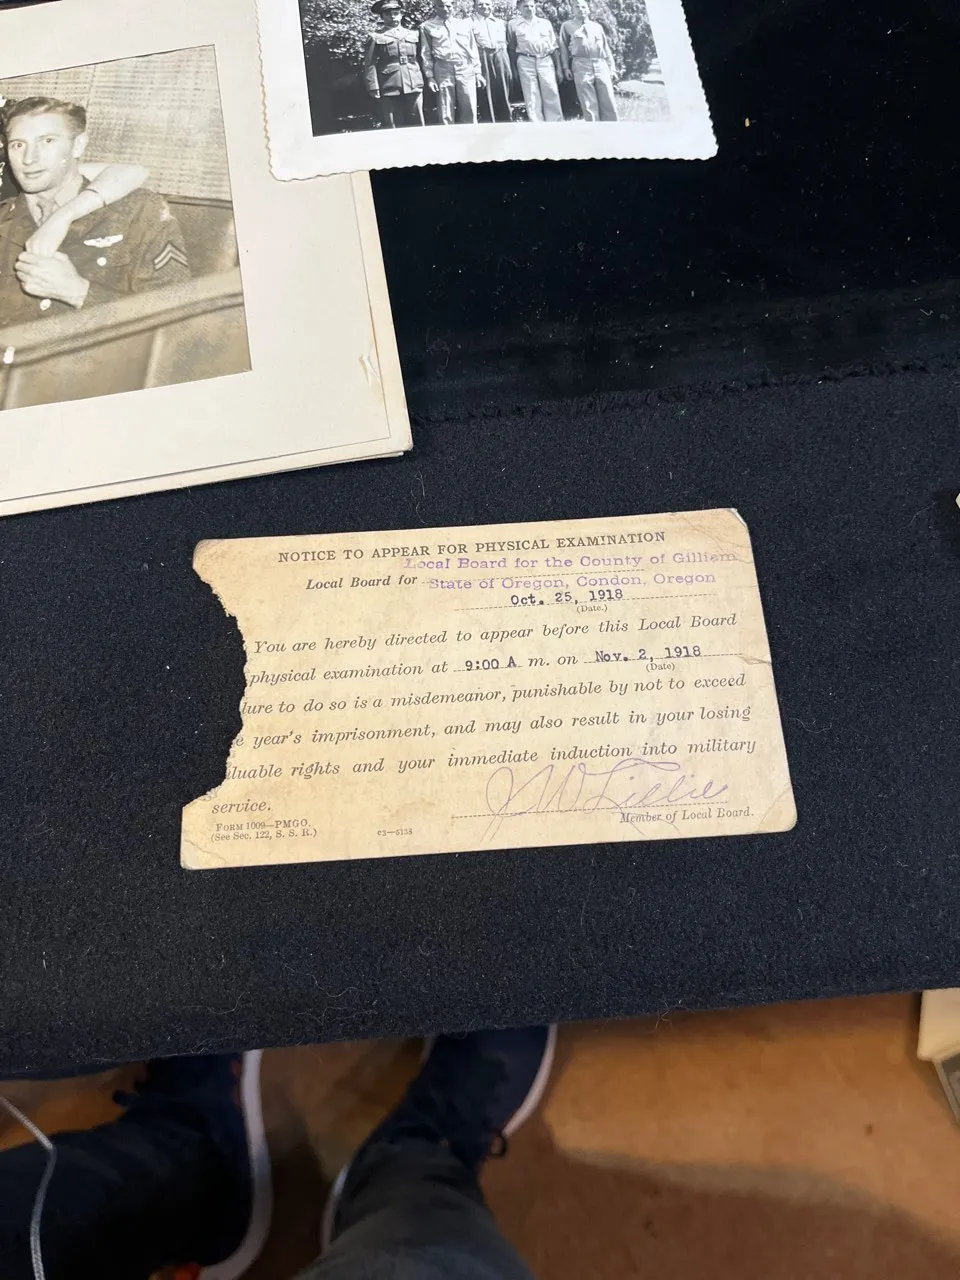 NOTICE TO APPEAR FOR PHYSICAL EXAMINATION
Local Board for the County of Gilliam
Local Board for State of Oregon, Condon, Oregon
Oct. 25, 1918
(Date.)
You are hereby directed to appear before this Local Board
physical examination at 9:00 A m. on Nov. 2, 1918
(Date)
lure to do so is a misdemeanor, punishable by not to exceed
e year's imprisonment, and may also result in your losing
luable rights and your immediate induction into military
service.
Member of Local Board.
FORM 1009—PMGO.
(See Sec. 122, S. S. R.)
c3—5138